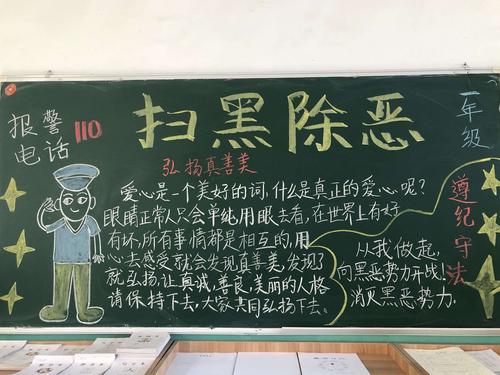 报警
电话
110
扫黑除恶
一年级
弘扬真善美
爱心是一个美好的词,什么是真正的爱心呢?
眼睛正常人只会单纯用眼去看,在世上有好
有坏,所有事情都是相互的,用
心去感受就会发现真善美,发现了
就弘扬,让真诚,善良,美丽的人格
请保持下去,大家共同弘扬下去。
遵纪守法
从我做起,
向黑恶势力开战!
消灭黑恶势力。